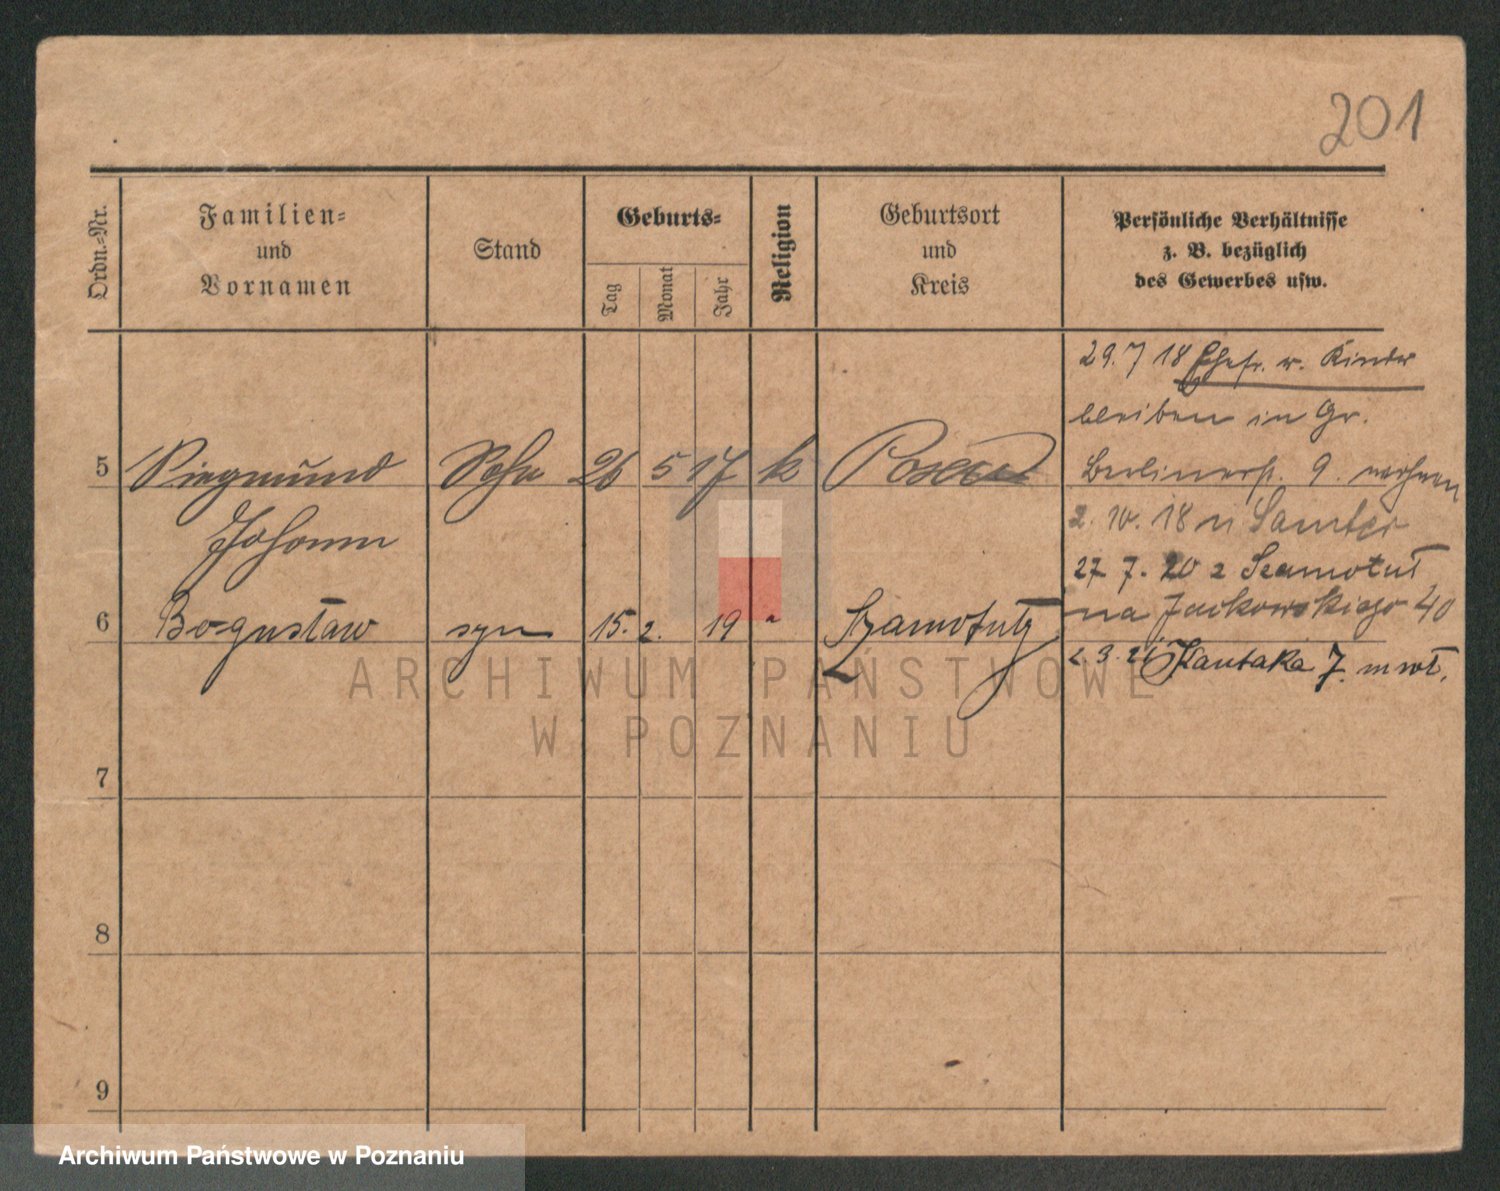 201
Ordn.-Nr.
Familien-
und
Vornamen
Stand
Geburts-
Tag
Monat
Jahr
Religion
Geburtsort
und
Kreis
Persönliche Verhältnisse
z. B. bezüglich
des Gewerbes usw.
29. 7 18 Ehefr. u. Kinder
bleiben in Gr.
5 Siegmund Sohn 26 5 17 k Posen
Berlinerstr. 9. wohnen
Johann
2. 10. 18 n Samter
27 7. 20 z Szamotuł
6 Bogusław syn 15. 2. 19 " Szamotuły
na Jackowskiego 40
2. 3. 21 Kantaka 7. m wł.
7
8
9
ARCHIWUM PAŃSTWOWE
W POZNANIU
Archiwum Państwowe w Poznaniu